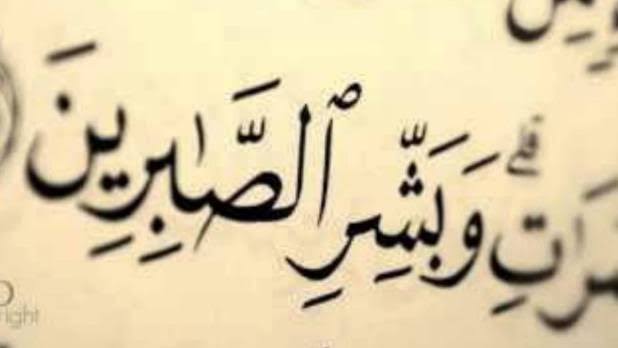 وَبَشِّرِ ٱلصَّٰبِرِينَ
right